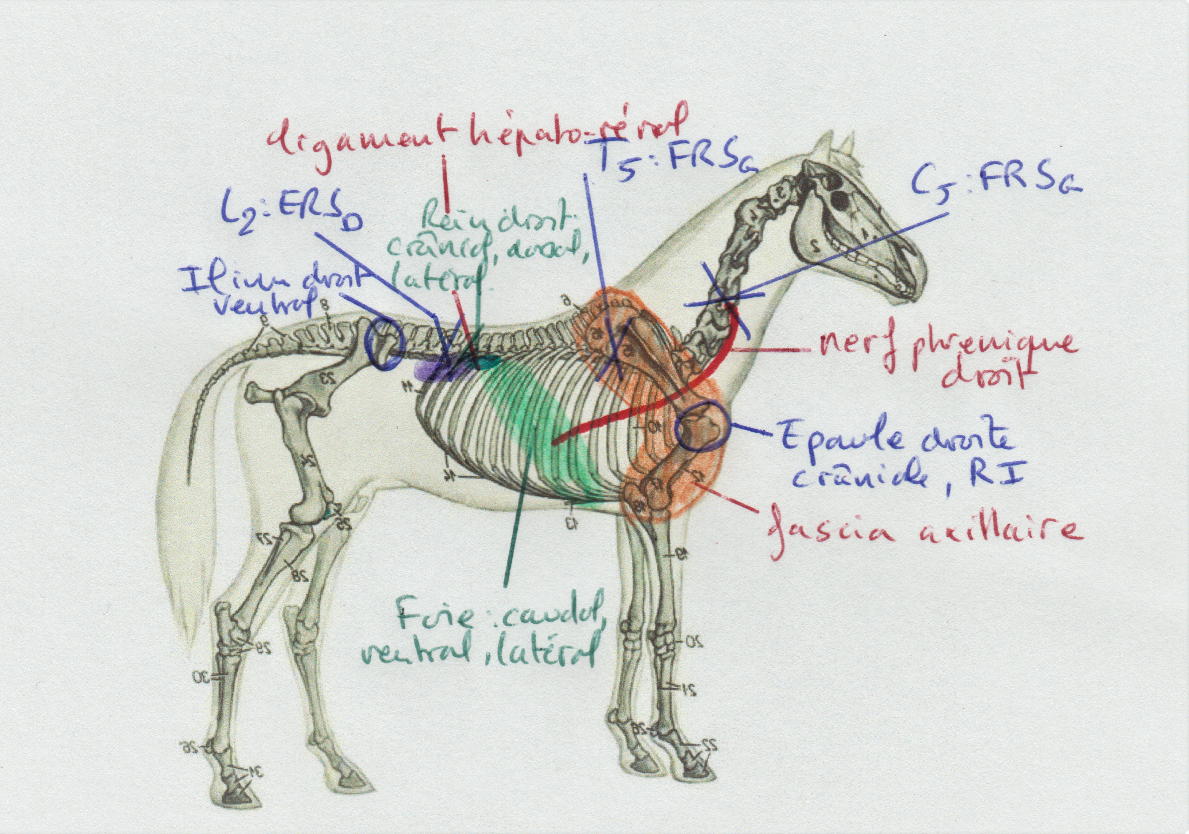 ligament hépato-rénal
T5: FRSG
C5: FRSG
L2: ERSD
Rein droit
crânial, dorsal,
latéral
Ilium droit
ventral
nerf phrénique
droit
Epaule droite
crâniale, RI
fascia axillaire
Foie: caudal,
ventral, latéral
2
6
8
9
10
11
13
14
19
20
21
22
23
26
27
28
29
30
31